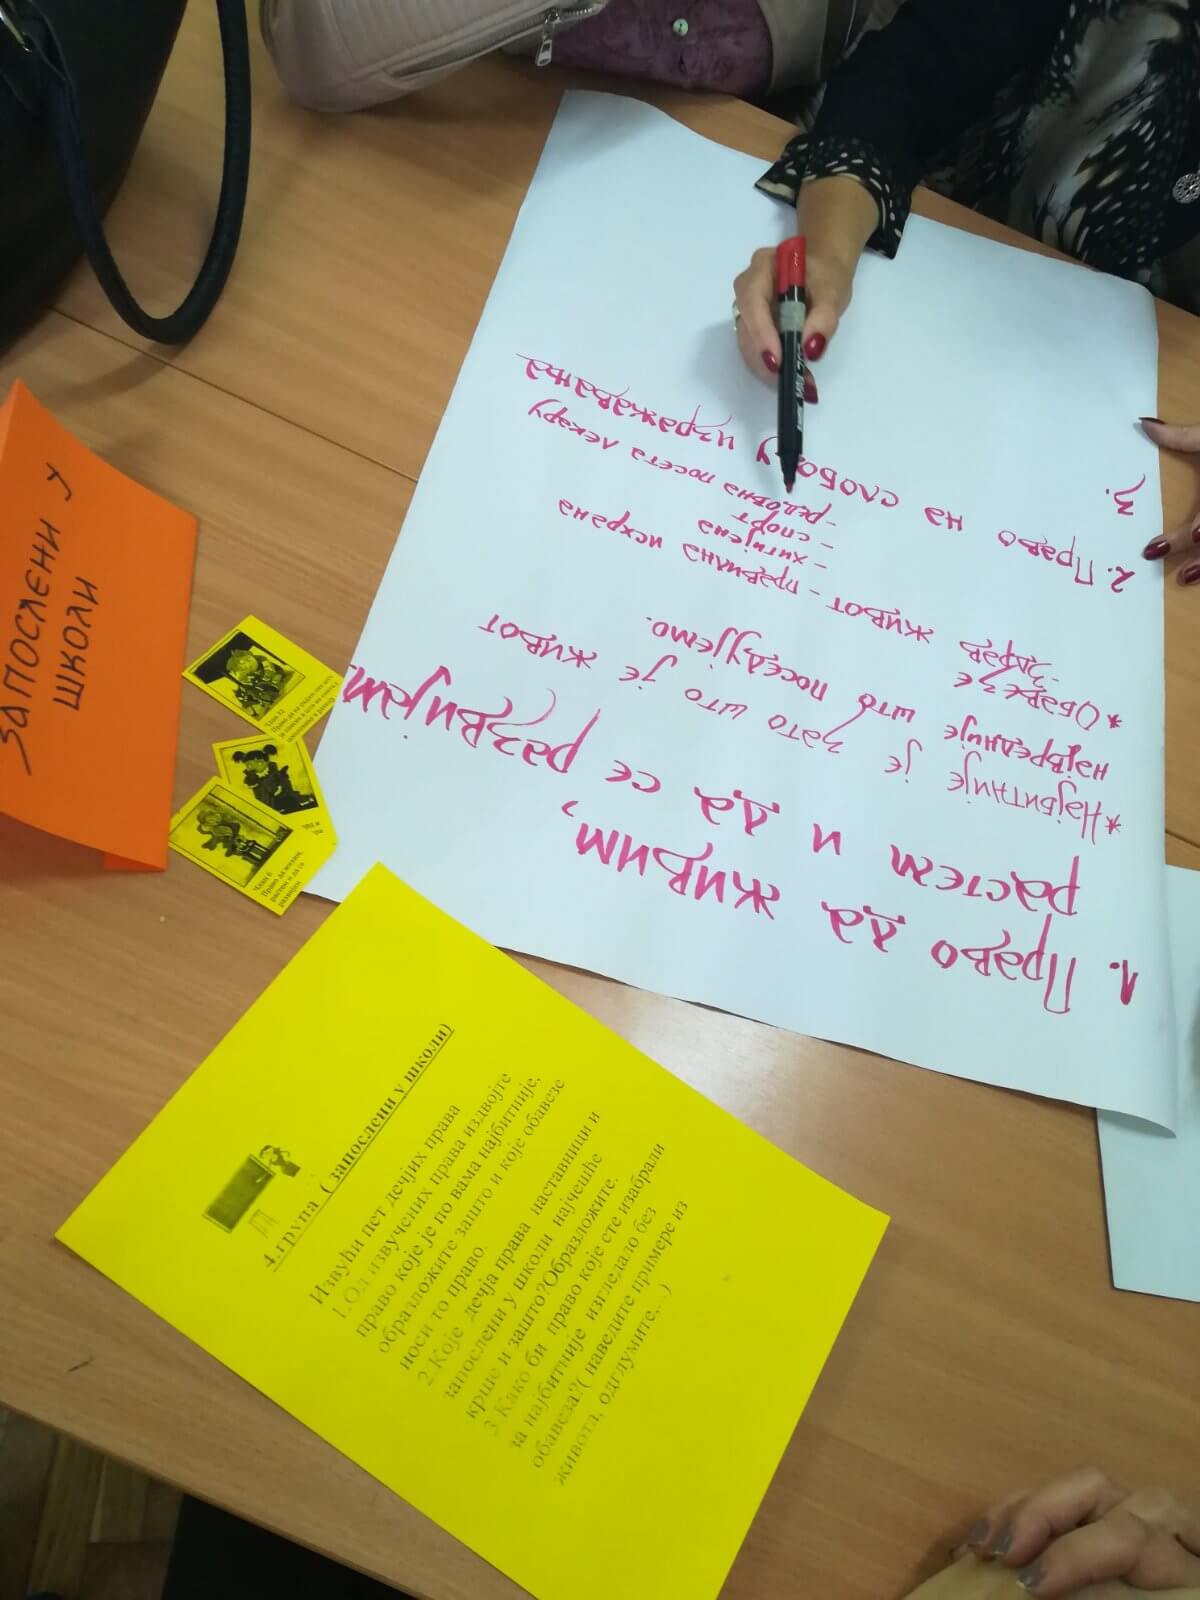 ЗАПОСЛЕНИ У
ШКОЛИ
1. Право да живим,
растем и да се развијам
*Најбитније је зато што је живот
највредније што поседујемо.
*Обавезе
-Здрав живот - правилна исхрана
- хигијена
- спорт
- редовна посета лекару
2. Право на слободу изражавања
3.
Члан 6
Право да живим,
растем и да се
развијам
Члан 32
4.група (запослени у школи)
Извући пет дечјих права
1.Од извучених права издвојте
право које је по вама најбитније,
образложите зашто и које обавезе
носи то право
2.Које дечја права наставници и
запослени у школи најчешће
крше и зашто?Образложите.
3.Како би право које сте изабрали
за најбитније изгледало без
обавеза?( наведите примере из
живота, одглумите,...)